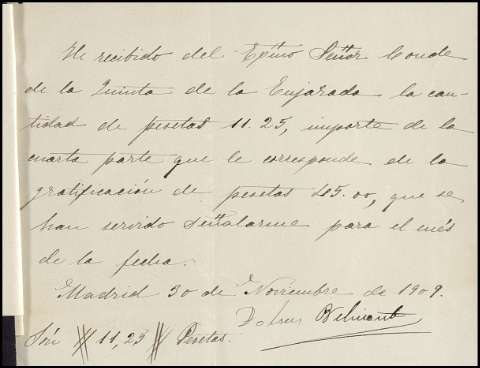 He recibido del Exmo Señor Conde
de la Quinta de la Enjarada la can-
tidad de pesetas 11.25, importe de la
cuarta parte que le corresponde de la
gratificación de pesetas 45.00, que se
han servido Señalarme para el més
de la fecha.
Madrid 30 de Noviembre de 1909.
Dolores Belmonte
Són # 11,25 # Pesetas.